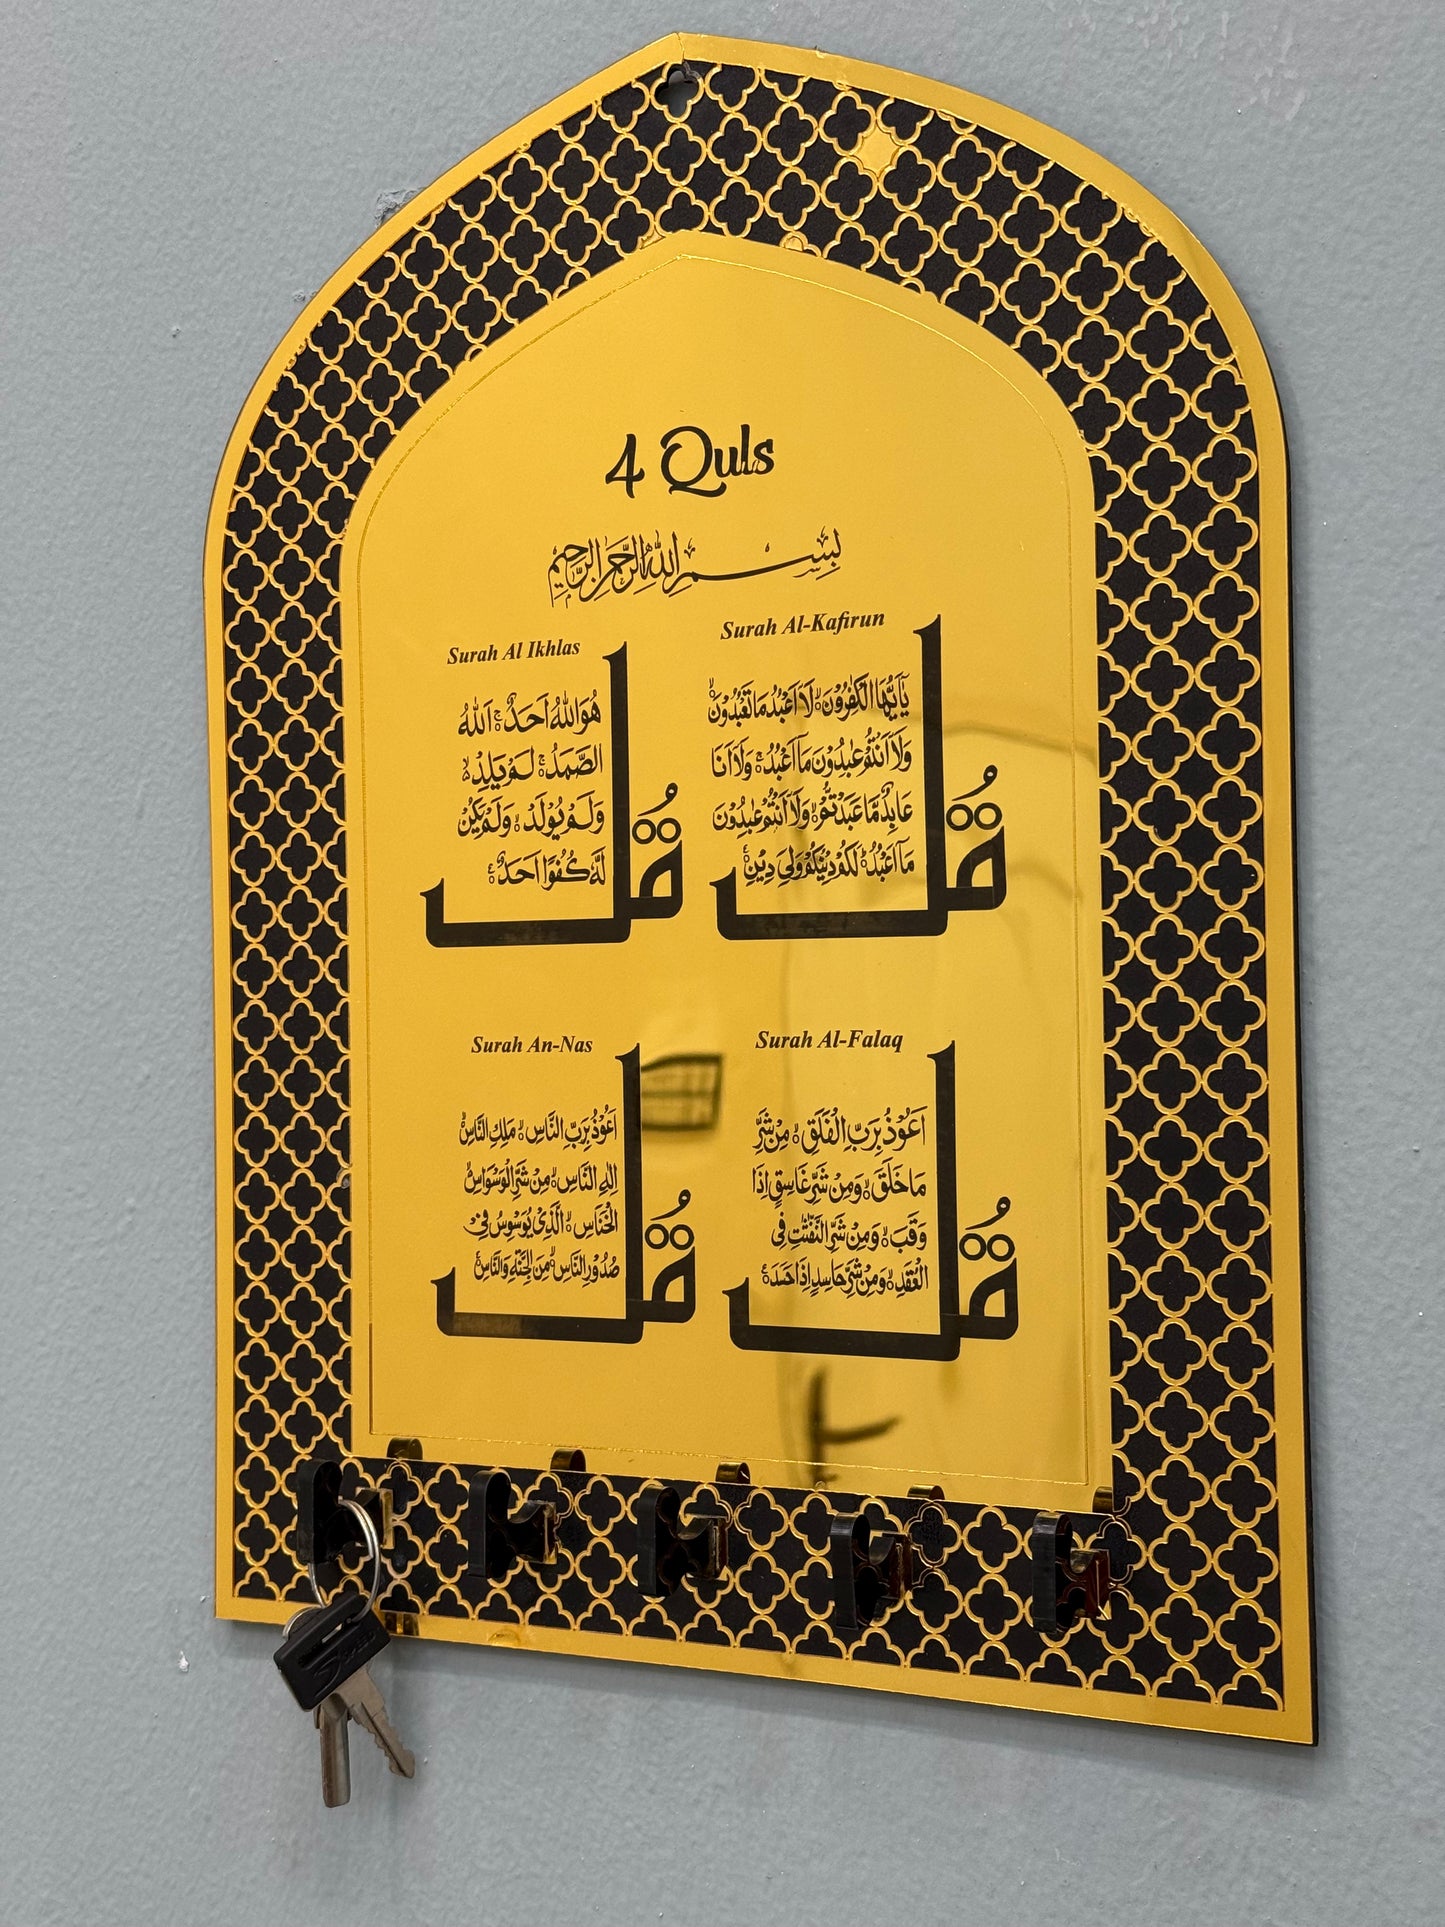 4 Quls
بِسْمِ اللهِ الرَّحْمٰنِ الرَّحِيْمِ
Surah Al-Kafirun
قُلْ
يٰۤاَيُّهَا الْكٰفِرُوْنَ ۙ لَاۤ اَعْبُدُ مَا تَعْبُدُوْنَ ۙ
وَلَاۤ اَنْتُمْ عٰبِدُوْنَ مَاۤ اَعْبُدُ ۚ وَلَاۤ اَنَا
عَابِدٌ مَّا عَبَدْتُّمْ ۙ وَلَاۤ اَنْتُمْ عٰبِدُوْنَ
مَاۤ اَعْبُدُ ؕ لَكُمْ دِيْنُكُمْ وَلِيَ دِيْنِ ۧ
Surah Al Ikhlas
قُلْ
هُوَ اللّٰهُ اَحَدٌ ۚ اَللّٰهُ
الصَّمَدُ ۚ لَمْ يَلِدْ ۙ
وَلَمْ يُوْلَدْ ۙ وَلَمْ يَكُنْ
لَّهٗ كُفُوًا اَحَدٌ ۧ
Surah Al-Falaq
قُلْ
اَعُوْذُ بِرَبِّ الْفَلَقِ ۙ مِنْ شَرِّ
مَا خَلَقَ ۙ وَمِنْ شَرِّ غَاسِقٍ اِذَا
وَقَبَ ۙ وَمِنْ شَرِّ النَّفّٰثٰتِ فِى
الْعُقَدِ ۙ وَمِنْ شَرِّ حَاسِدٍ اِذَا حَسَدَ ۧ
Surah An-Nas
قُلْ
اَعُوْذُ بِرَبِّ النَّاسِ ۙ مَلِكِ النَّاسِ ۙ
اِلٰهِ النَّاسِ ۙ مِنْ شَرِّ الْوَسْوَاسِ ۙ
الْخَنَّاسِ ۙ الَّذِيْ يُوَسْوِسُ فِيْ
صُدُوْرِ النَّاسِ ۙ مِنَ الْجِنَّةِ وَالنَّاسِ ۧ